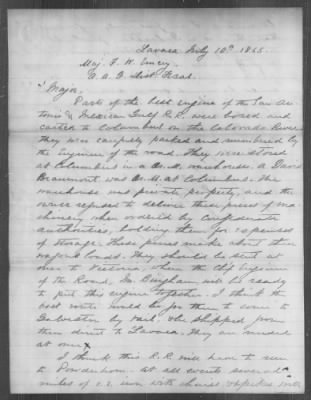 Lavaca July 10th 1865.
Maj. F. W. Emery
A. A. G. Dist. Texas.
"Major
Parts of the best engine of the San An-
tonio & Mexican Gulf R.R. were boxed and
carted to Columbus on the Colorado River
they were carefully packed and numbered by
the Engineer of the road. They were stored
at Columbus in a warehouse. a David
Braumont was Q.M. at Columbus. The
warehouse was private property, and the
owner refused to deliver these pieces of ma-
chinery when ordered by Confederate
authorities, holding them for expenses
of storage. These pieces make about three
wagon loads. They should be sent at
once to Victoria where the chf Engineer
of the Road, Mr. Bingham will be ready
to put this engine together. I think the
best route would be for them to come to
Galveston by rail & be shipped from
there direct to Lavaca. They are needed
at once
I think this R.R. will have to run
to Powderhorn. At all events several
miles of r.r. iron with chairs & spikes